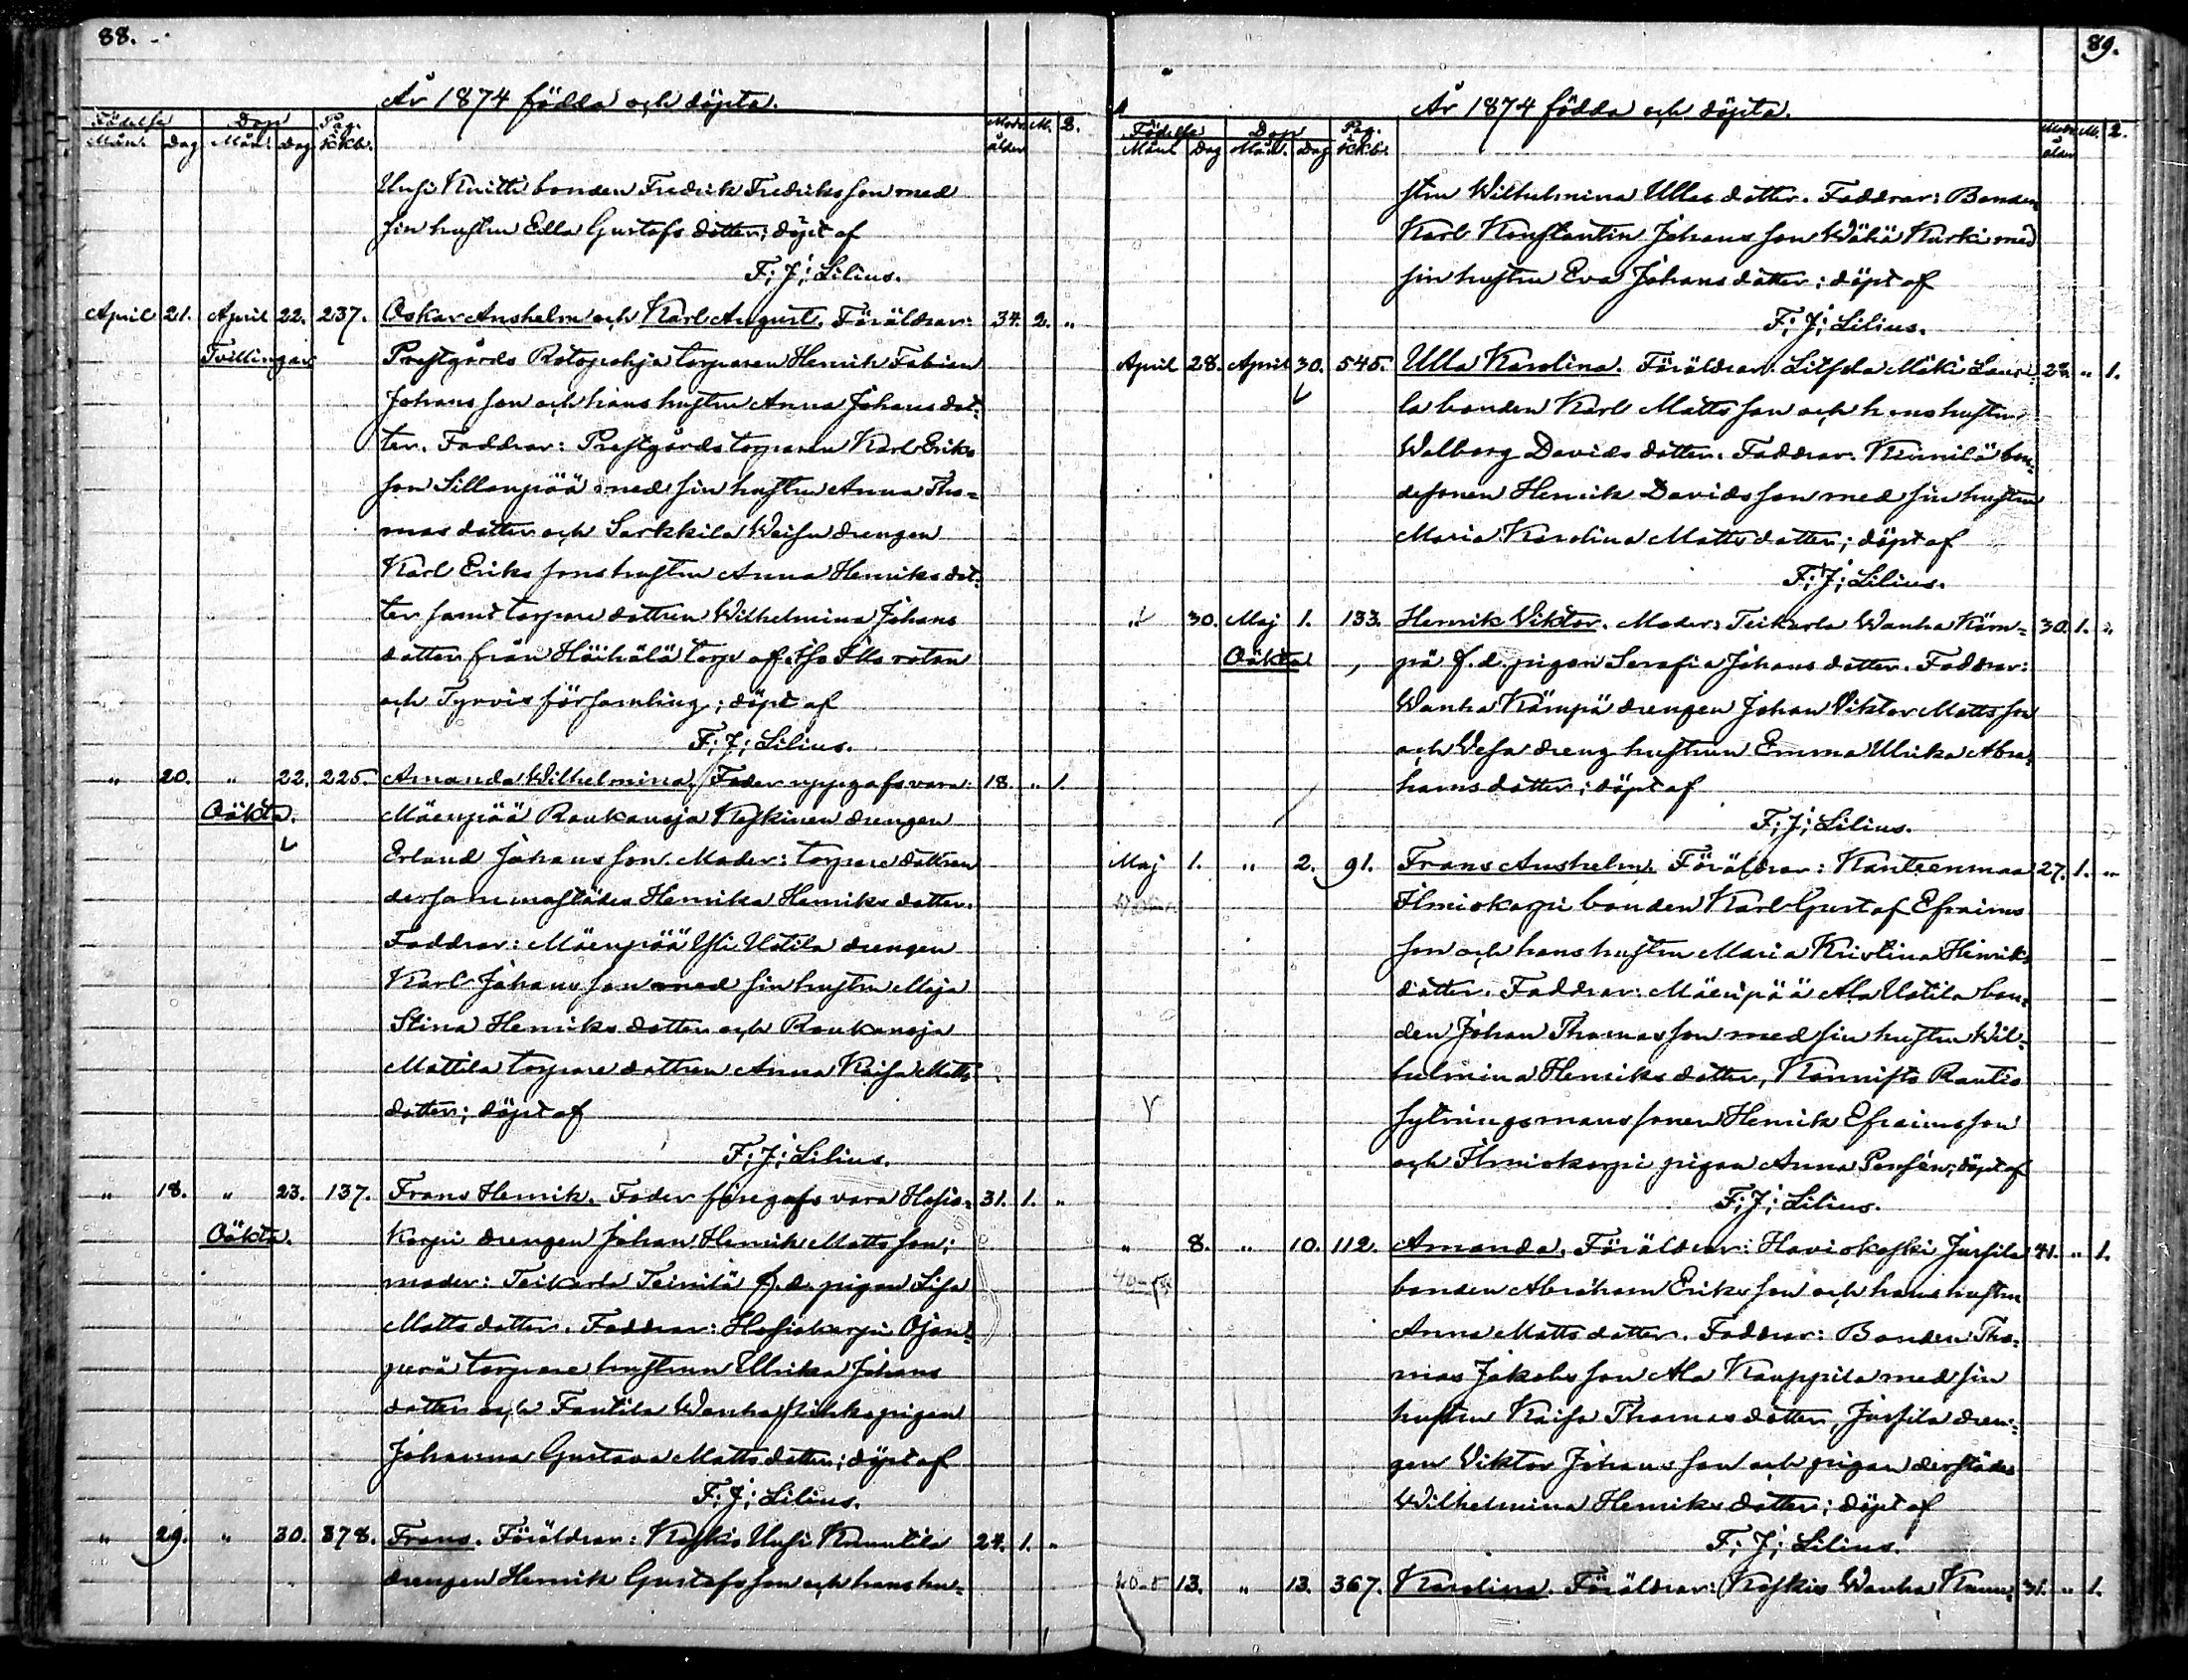 88.
År 1874 födda och döpta.
Födelse Dop Pag. Mod. M. Q.
Mån. Dag Mån. Dag kkb. ålder
Uusi Knitti bonden Fredrik Fredriksson med
sin hustru Edla Gustafsdotter; döpt af
F: J: Lilius.
April 21. April 22. 237. Oskar Anshelm och Karl August. Föräldrar: 34. 2. "
Tvillingar Prestgårds Rotopohja torparen Henrik Fabian
Johansson och hans hustru Anna Johansdot-
ter. Faddrar: Prestgårds torparen Karl Eriks
son Sillanpää med sin hustru Anna Tho-
masdotter och Sarkkila drengen
Karl Erikssons hustru Anna Henriksdot-
ter samt torparedottren Wilhelmina Johans
dotter från torp af
och Tyrvis församling; döpt af
F: J: Lilius.
" 20. " 22. 225. Amanda Wilhelmina. Fader uppgafs vara: 18. " 1.
Oäkta. Mäenpää Raukanoja Koskinen drengen
Erland Johansson. Moder: torparedottren
dersammastädes Henrika Henriksdotter.
Faddrar: Mäenpää Yli Uotila drengen
Karl Johansson med sin hustru Maja
Stina Henriksdotter och Raukanoja
Mattila torparedottren Anna Kaisa Matts
dotter; döpt af
F: J: Lilius.
" 18. " 23. 137. Frans Henrik. Fader föregafs vara Hosio- 31. 1. "
Oäkta. korpi drengen Johan Henrik Mattsson;
moder: Teikarla Teinilä f. d. pigan Lisa
Mattsdotter. Faddrar: Hosiokorpi Ojan-
perä torparehustrun Ulrika Johans
dotter och Fantila Wanha pigan
Johanna Gustava Mattsdotter; döpt af
F: J: Lilius.
" 29. " 30. 378. Frans. Föräldrar: Koskis Uusi Knuutila 24. 1. "
drengen Henrik Gustafsson och hans hu-
89.
År 1874 födda och döpta.
Födelse Dop Pag. Mod. M. Q.
Mån Dag Mån. Dag kkb. ålder
stru Wilhelmina Ullasdotter. Faddrar: Bonden
Karl Konstantin Johansson Wähä Kurki med
sin hustru Eva Johansdotter; döpt af
F: J: Lilius.
April 28. April 30. 545. Ulla Karolina. Föräldrar: Liitsola Mäki Lauri- " 1.
la bonden Karl Mattsson och hans hustru
Walborg Davidsdotter. Faddrar: Kinnilä bon-
desonen Henrik Davidsson med sin hustru
Maria Karolina Mattsdotter; döpt af
F: J: Lilius.
" 30. Maj 1. 133. Henrik Viktor. Moder: Teikarla Wanha Käm- 30. 1. "
Oäkta pä f. d. pigan Serafia Johansdotter. Faddrar:
Wanha Kämpä drengen Johan Viktor Mattsson
och Vesa dreng hustrun Emma Ulrika Abra-
hamsdotter; döpt af
F: J: Lilius.
Maj 1. " 2. 91. Frans Anshelm. Föräldrar: Kantzenmaa 27. 1. "
Ilmiokorpi bonden Karl Gustaf Efraims
son och hans hustru Maria Kristina Henriks
dotter. Faddrar: Mäenpää Ala Uotila bon-
den Johan Thomasson med sin hustru Wil-
helmina Henriksdotter, Kannisto Rautio
sytningsmanssonen Henrik Efraimsson
och Ilmiokorpi pigan Anna Pensén; döpt af
F: J: Lilius.
" 8. " 10. 112. Amanda. Föräldrar: Haviokoski Jussila 41. " 1.
bonden Abraham Eriksson och hans hustru
Anna Mattsdotter. Faddrar: Bonden Tho-
mas Jakobsson Ala Kauppila med sin
hustru Kaisa Thomasdotter, Jussila dren-
gen Viktor Johansson och pigan derstädes
Wilhelmina Henriksdotter; döpt af
F: J: Lilius.
13. " 13. 367. Karolina. Föräldrar: Koskis Wanha Knuu- 31. " 1.